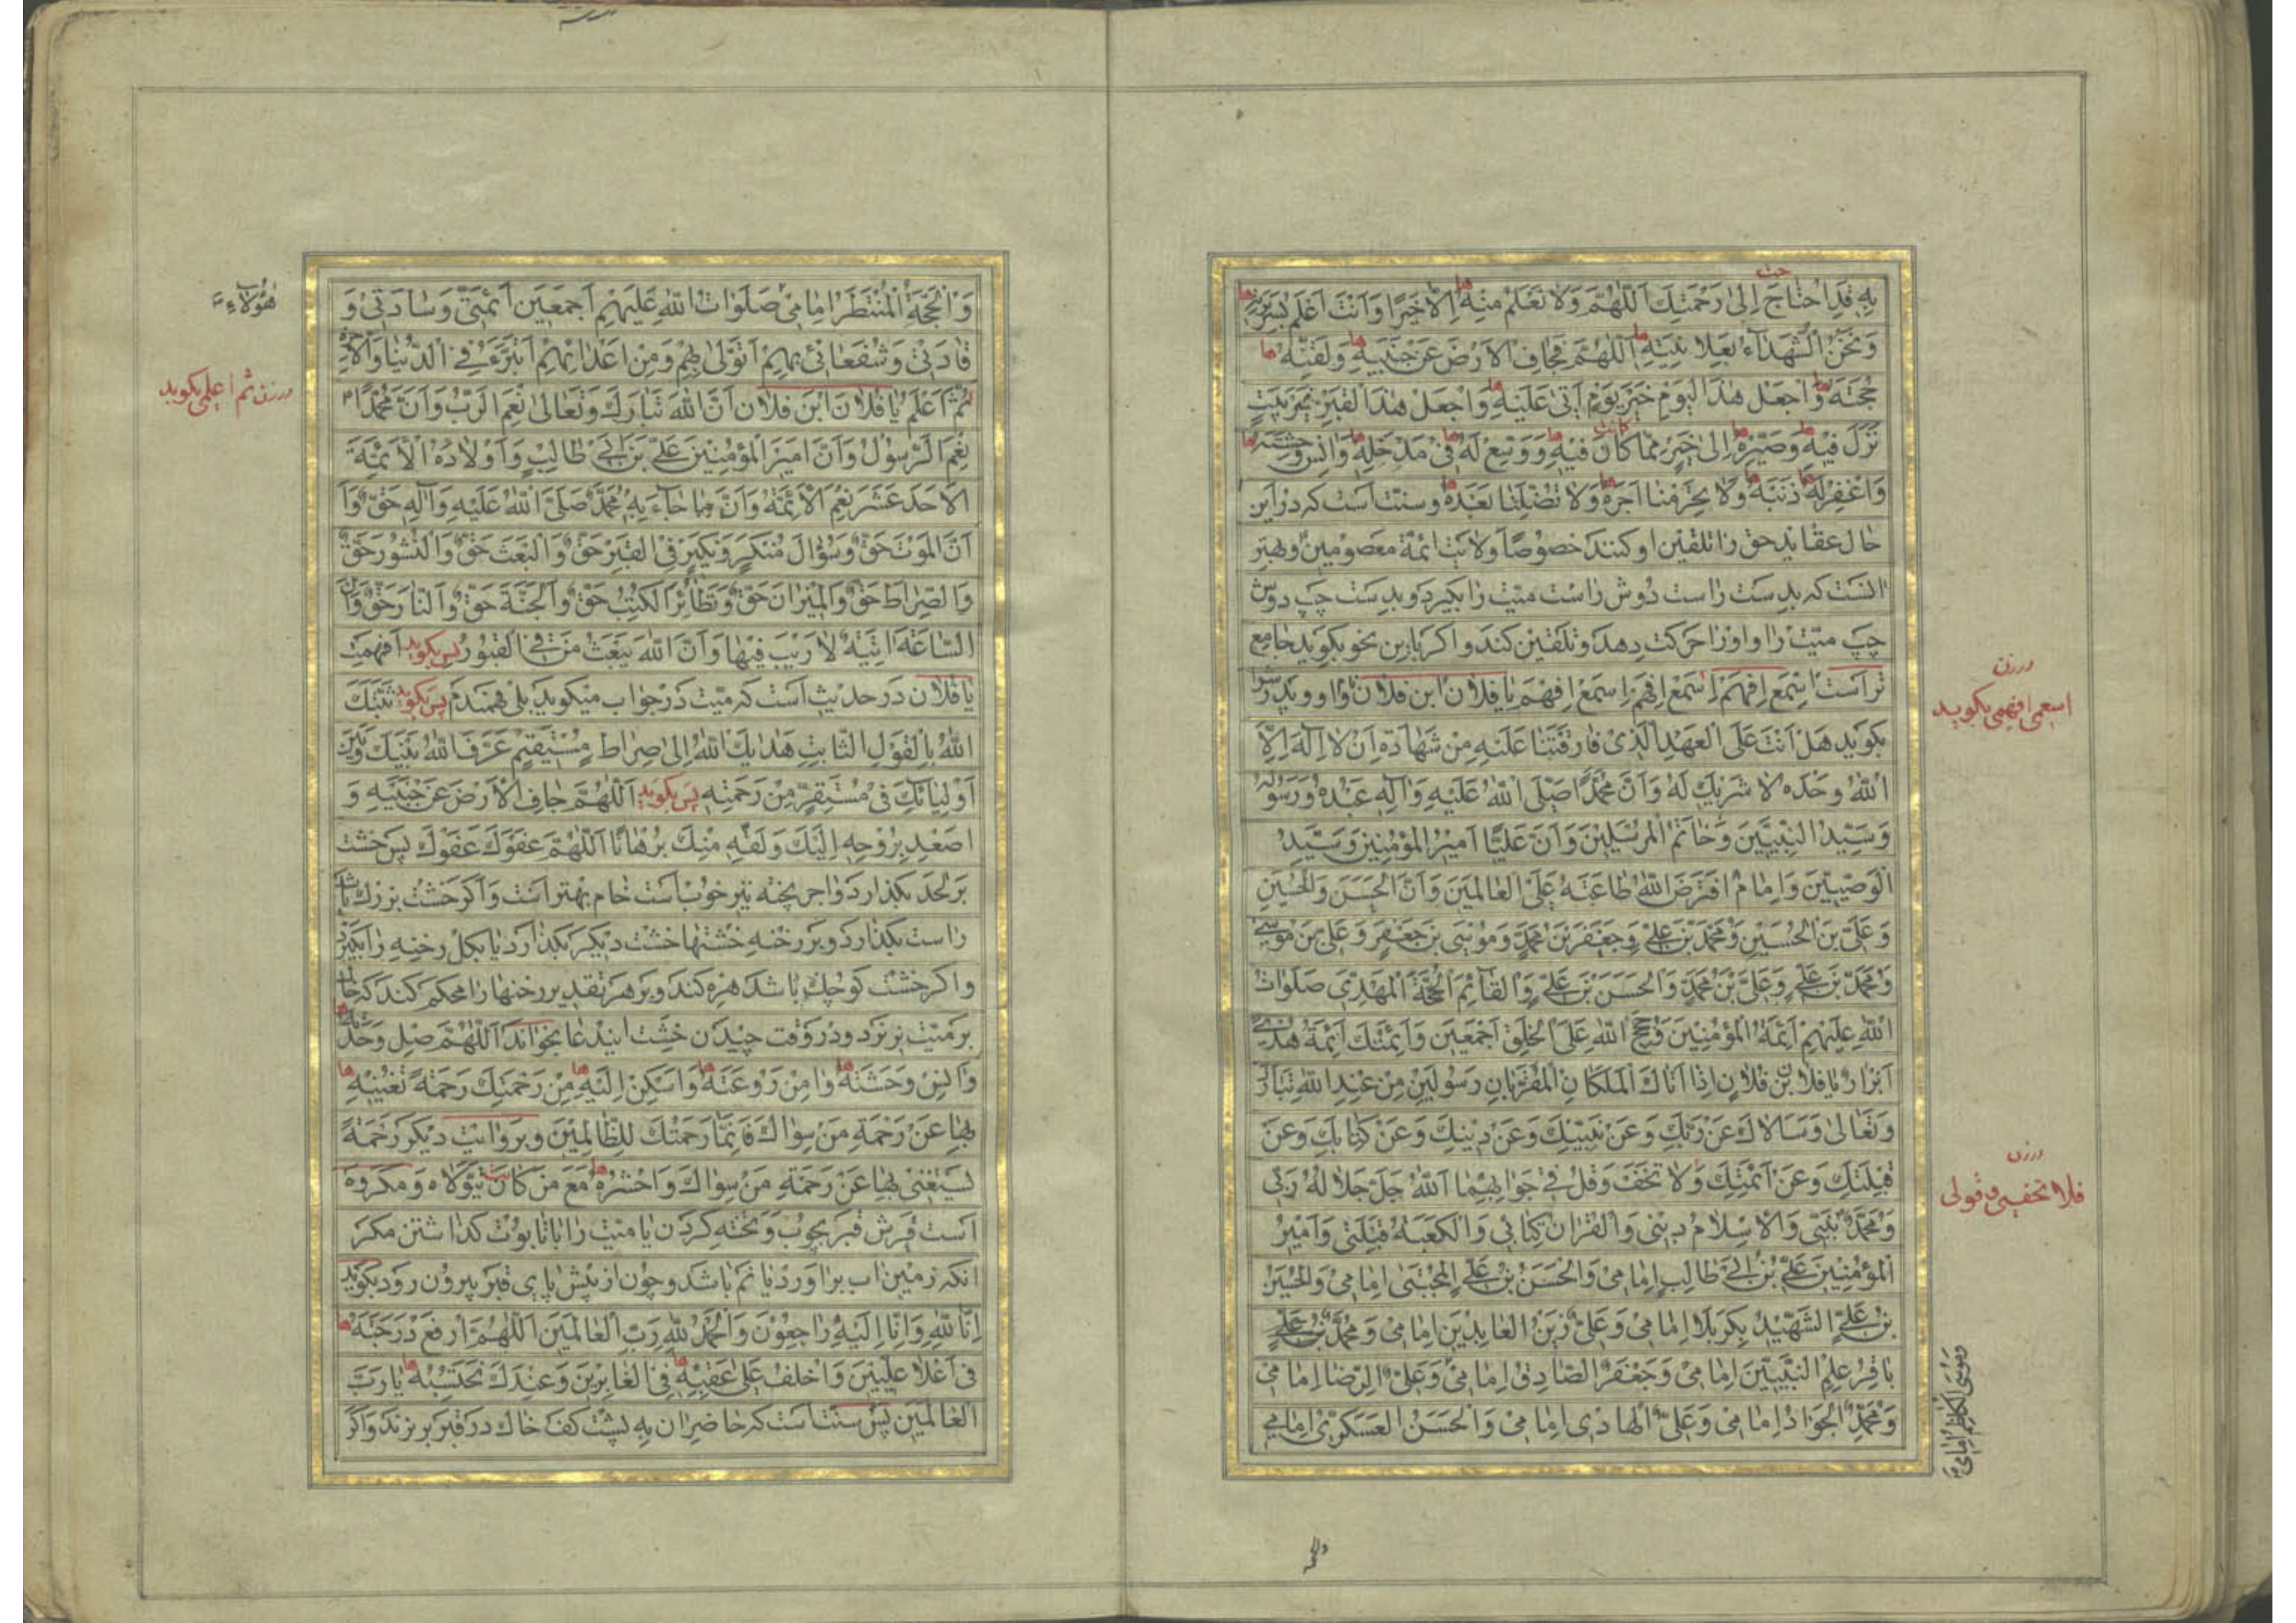 بِهِ قَدِ احْتَاجَ اِلىٰ رَحْمَتِكَ اَللّٰهُمَّ وَلا نَعْلَمُ مِنْهُ اِلّا خَيْرًا وَاَنْتَ اَعْلَمُ بِسَرِيرَتِهِ
وَنَحْنُ الشُّهَدَاءُ بِعَلانِيَتِهِ اَللّٰهُمَّ فَجَافِ الْاَرْضَ عَنْ جَنْبَيْهِ وَلَقِّنْهُ ها
حُجَّتَهُ وَاجْعَلْ هٰذَا الْيَوْمَ خَيْرَ يَوْمٍ اَتىٰ عَلَيْهِ وَاجْعَلْ هٰذَا الْقَبْرَ خَيْرَ بَيْتٍ
نَزَلَ فِيهِ وَصَيِّرْهُ اِلىٰ خَيْرٍ مِمَّا كَانَ فِيهِ وَوَسِّعْ لَهُ فِى مَدْخَلِهِ وَانِسْ وَحْشَتَهُ
وَاغْفِرْ لَهُ ذَنْبَهُ وَلا تَحْرِمْنَا اَجْرَهُ وَلا تُضِلَّنَا بَعْدَهُ وسنت است كه در اين
حال عقايد حق را تلقين او كنند خصوصًا ولايت ائمة معصومين و بهتر
انست كه بدست راست دوش راست ميت را بكيرد و بدست چپ دوش
چپ ميت را و او را حركت دهد و تلقين كند و اكر باين نحو بكويد جامع
تر است اِسْمَعْ اِفْهَمْ اِسْمَعْ اِفْهَمْ اِسْمَعْ اِفْهَمْ يا فلان ابن فلان
بكويد هَلْ اَنْتَ عَلَى الْعَهْدِ الَّذِى فَارَقْتَنَا عَلَيْهِ مِنْ شَهَادَةِ اَنْ لا اِلٰهَ اِلَّا
اللّٰهُ وَحْدَهُ لا شَرِيكَ لَهُ وَاَنَّ مُحَمَّدًا صَلَّى اللّٰهُ عَلَيْهِ وَآلِهِ عَبْدُهُ وَرَسُولُهُ
وَسَيِّدُ النَّبِيِّينَ وَخَاتَمُ الْمُرْسَلِينَ وَاَنَّ عَلِيًّا اَمِيرُ الْمُؤْمِنِينَ وَسَيِّدُ
الْوَصِيِّينَ وَاِمَامٌ افْتَرَضَ اللّٰهُ طَاعَتَهُ عَلَى الْعَالَمِينَ وَاَنَّ الْحَسَنَ وَالْحُسَيْنِ
وَعَلِىَّ بْنَ الْحُسَيْنِ وَمُحَمَّدَ بْنَ عَلِىٍّ وَجَعْفَرَ بْنَ مُحَمَّدٍ وَمُوسَى بْنَ جَعْفَرٍ وَعَلِىَّ بْنَ مُوسىٰ
وَمُحَمَّدَ بْنَ عَلِىٍّ وَعَلِىَّ بْنَ مُحَمَّدٍ وَالْحَسَنَ بْنَ عَلِىٍّ وَالْقَائِمَ الْحُجَّةَ الْمَهْدِىَّ صَلَوَاتُ
اللّٰهِ عَلَيْهِمْ اَئِمَّةُ الْمُؤْمِنِينَ وَحُجَجُ اللّٰهِ عَلَى الْخَلْقِ اَجْمَعِينَ وَاَئِمَّتُكَ اَئِمَّةُ هُدىً
اَبْرَارٌ يا فلان بن فلان اِذَا اَتَاكَ الْمَلَكَانِ الْمُقَرَّبَانِ رَسُولَيْنِ مِنْ عِنْدِ اللّٰهِ تَبَارَكَ
وَتَعَالىٰ وَسَالاكَ عَنْ رَبِّكَ وَعَنْ نَبِيِّكَ وَعَنْ دِينِكَ وَعَنْ كِتَابِكَ وَعَنْ
قِبْلَتِكَ وَعَنْ اَئِمَّتِكَ وَلا تَخَفْ وَقُلْ فِى جَوَابِهِمَا اَللّٰهُ جَلَّ جَلالُهُ رَبِّى
وَمُحَمَّدٌ نَبِيِّى وَالْاِسْلامُ دِينِى وَالْقُرْانُ كِتَابِى وَالْكَعْبَةُ قِبْلَتِى وَاَمِيرُ
الْمُؤْمِنِينَ عَلِىُّ بْنُ اَبِى طَالِبٍ اِمَامِى وَالْحَسَنُ بْنُ عَلِىٍّ الْمُجْتَبىٰ اِمَامِى وَالْحُسَيْنُ
بْنُ عَلِىٍّ الشَّهِيدُ بِكَرْبَلا اِمَامِى وَعَلِىٌّ زَيْنُ الْعَابِدِينَ اِمَامِى وَمُحَمَّدُ بْنُ عَلِىٍّ
بَاقِرُ عِلْمِ النَّبِيِّينَ اِمَامِى وَجَعْفَرٌ الصَّادِقُ اِمَامِى وَعَلِىٌّ الرِّضَا اِمَامِى
وَمُحَمَّدٌ الْجَوَادُ اِمَامِى وَعَلِىٌّ الْهَادِى اِمَامِى وَالْحَسَنُ الْعَسْكَرِىُّ اِمَامِى
درزن
اسمعى افهمى بكويد
درزن
فلا تخفى و قولى
وَمُوسَى الْكَاظِمُ اِمَامِى
والحجة
وَالْحُجَّةُ الْمُنْتَظَرُ اِمَامِى صَلَوَاتُ اللّٰهِ عَلَيْهِمْ اَجْمَعِينَ اَئِمَّتِى وَسَادَتِى وَ
قَادَتِى وَشُفَعَائِى بِهِمْ اَتَوَلّىٰ وَمِنْ اَعْدَائِهِمْ اَتَبَرَّءُ فِى الدُّنْيَا وَالْاخِرَةِ
ثُمَّ اعْلَمْ يا فلان ابن فلان اَنَّ اللّٰهَ تَبَارَكَ وَتَعَالىٰ نِعْمَ الرَّبُّ وَاَنَّ مُحَمَّدًا
نِعْمَ الرَّسُولُ وَاَنَّ اَمِيرَ الْمُؤْمِنِينَ عَلِىَّ بْنَ اَبِى طَالِبٍ وَاَوْلادَهُ الْاَئِمَّةَ
الْاَحَدَ عَشَرَ نِعْمَ الْاَئِمَّةُ وَاَنَّ مَا جَاءَ بِهِ مُحَمَّدٌ صَلَّى اللّٰهُ عَلَيْهِ وَآلِهِ حَقٌّ وَاَ
اَنَّ الْمَوْتَ حَقٌّ وَسُؤَالَ مُنْكَرٍ وَنَكِيرٍ فِى الْقَبْرِ حَقٌّ وَالْبَعْثَ حَقٌّ وَالنُّشُورَ حَقٌّ
وَالصِّرَاطَ حَقٌّ وَالْمِيزَانَ حَقٌّ وَتَطَائُرَ الْكُتُبِ حَقٌّ وَالْجَنَّةَ حَقٌّ وَالنَّارَ حَقٌّ وَاَنَّ
السَّاعَةَ اتِيَةٌ لا رَيْبَ فِيهَا وَاَنَّ اللّٰهَ يَبْعَثُ مَنْ فِى الْقُبُورِ پس بكويد اَفَهِمْتَ
يا فلان در حديث است كه ميت در جواب ميكويد بلى فهميدم پس بكويد ثَبَّتَكَ
اللّٰهُ بِالْقَوْلِ الثَّابِتِ هَدَاكَ اللّٰهُ اِلىٰ صِرَاطٍ مُسْتَقِيمٍ عَرَّفَ اللّٰهُ بَيْنَكَ وَبَيْنَ
اَوْلِيَائِكَ فِى مُسْتَقَرٍّ مِنْ رَحْمَتِهِ پس بكويد اَللّٰهُمَّ جَافِ الْاَرْضَ عَنْ جَنْبَيْهِ وَ
اصْعَدْ بِرُوحِهِ اِلَيْكَ وَلَقِّهِ مِنْكَ بُرْهَانًا اَللّٰهُمَّ عَفْوَكَ عَفْوَكَ پس خشت
بر لحد بكذارد و اجر پخته نيز خوبست خام بهتر است و اكر خشت بزرك باشد
راست بكذارد و بر رخنه خشتها خشت ديكر بكذارد يا بكل رخنه را بكيرد
و اكر خشت كوچك باشد هره كند و بر هر تقدير رخنها را محكم كند كه خاك
بر ميت نريزد و در وقت چيدن خشت اين دعا بخواند اَللّٰهُمَّ صِلْ وَحْدَتَهُ
وَانِسْ وَحْشَتَهُ وَامِنْ رَوْعَتَهُ وَاَسْكِنْ اِلَيْهِ مِنْ رَحْمَتِكَ رَحْمَةً تُغْنِيهِ
بِهَا عَنْ رَحْمَةِ مَنْ سِوَاكَ فَاِنَّمَا رَحْمَتُكَ لِلظَّالِمِينَ وبروايت ديكر رَحْمَةً
يَسْتَغْنِى بِهَا عَنْ رَحْمَةِ مَنْ سِوَاكَ وَاحْشُرْهُ مَعَ مَنْ كَانَ يَتَوَلّاهُ ومكروه
است فرش قبر بچوب و تخته كردن يا ميت را با تابوت كذاشتن مكر
انكه زمين اب براورد يا نم باشد و چون از پيش پاى قبر بيرون رود بكويد
اِنَّا لِلّٰهِ وَاِنَّا اِلَيْهِ رَاجِعُونَ وَالْحَمْدُ لِلّٰهِ رَبِّ الْعَالَمِينَ اَللّٰهُمَّ ارْفَعْ دَرَجَتَهُ
فِى اَعْلا عِلِّيِّينَ وَاخْلُفْ عَلىٰ عَقِبِهِ فِى الْغَابِرِينَ وَعِنْدَكَ نَحْتَسِبُهُ يَا رَبَّ
الْعَالَمِينَ پس سنت است كه حاضران به پشت كف خاك در قبر بريزند و اكر
هٰؤُلاءِ
درزن ثم اعلمى بكويد